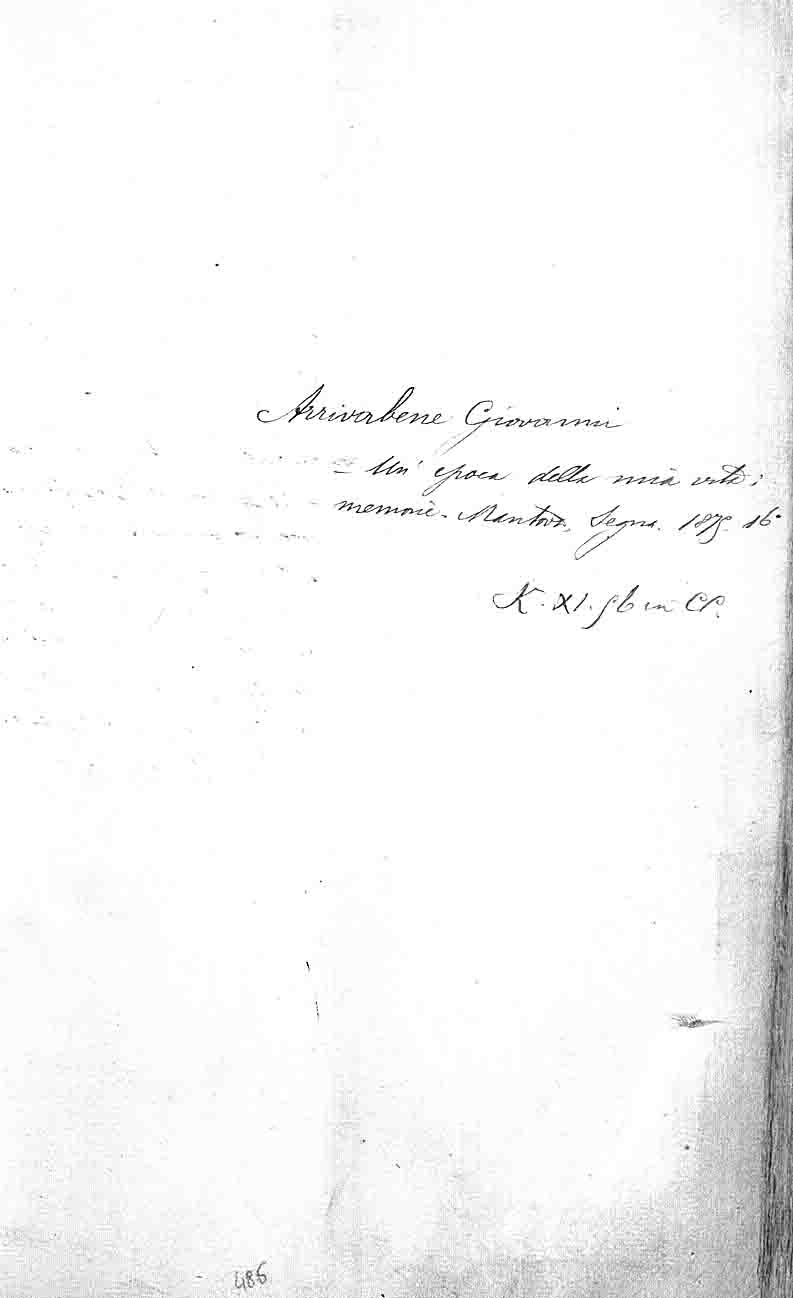 Arrivabene Giovanni
– Un' epoca della mia vita;
memorie. Mantova, Segna. 1875. 16°
K. XI. 56 in CP.
486